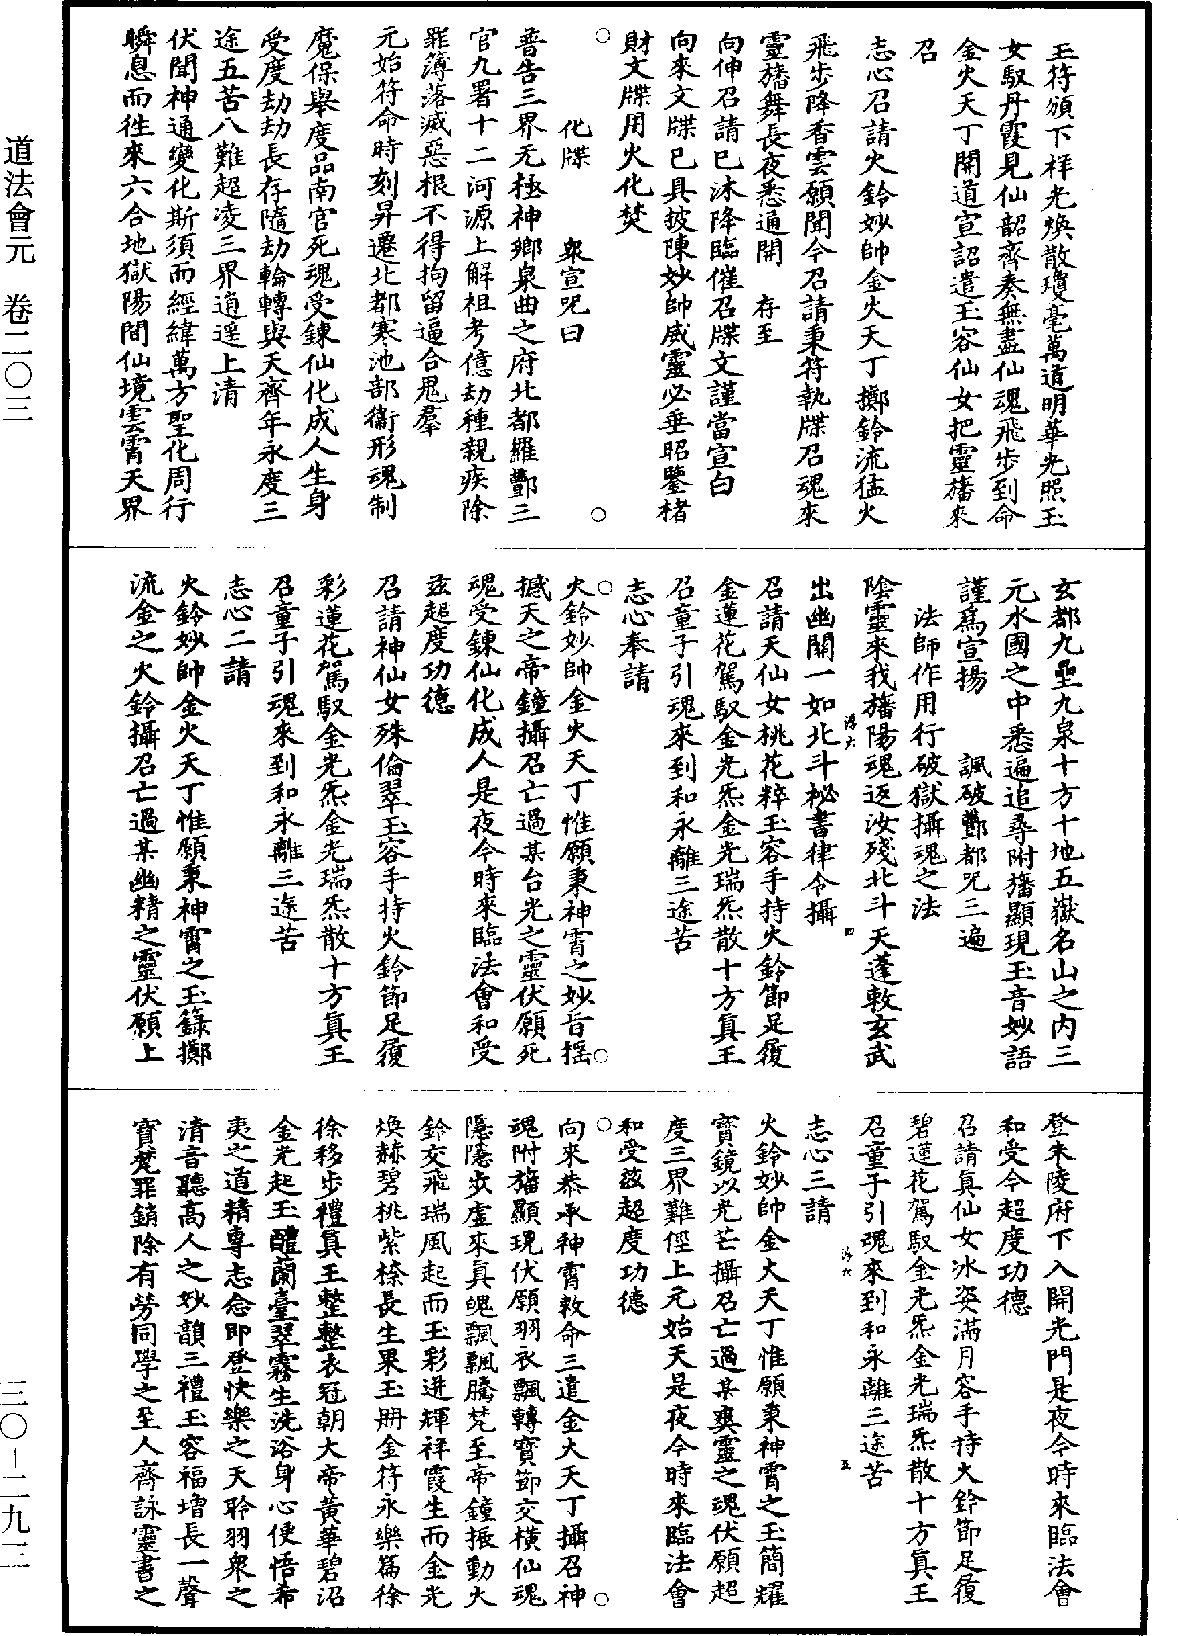 玉符頒下祥光煥散瓊毫萬道明華光照玉
女馭丹霞見仙韶齊奏無盡仙魂飛步到命
金火天丁開道宣詔遣玉容仙女把靈旛來
召
志心召請火鈴妙帥金火天丁擲鈴流猛火
飛步降香雲願聞今召請秉符執牒召魂來
靈旛舞長夜悉通開　存至
向伸召請已沐降臨催召牒文謹當宣白
向來文牒已具披陳妙帥威靈必垂昭鑒楮
財文牒用火化焚
○　化牒　衆宣咒曰　○
普告三界无極神鄉泉曲之府北都羅酆三
官九署十二河源上解祖考億劫種親疾除
罪簿落滅惡根不得拘留逼合鬼羣
元始符命時刻昇遷北都寒池部衞形魂制
魔保舉度品南宮死魂受鍊仙化成人生身
受度劫劫長存隨劫輪轉與天齊年永度三
途五苦八難超凌三界逍遥上清
伏聞神通變化斯須而經緯萬方聖化周行
瞬息而徃來六合地獄陽間仙境雲霄天界
玄都九壘九泉十方十地五嶽名山之内三
元水國之中悉遍追尋附旛顯現玉音妙語
謹爲宣揚　諷破酆都咒三遍
法師作用行破獄攝魂之法
陰靈來我旛陽魂返汝殘北斗天蓬敕玄武
出幽關一如北斗祕書律令攝
召請天仙女桃花粹玉容手持火鈴節足履
金蓮花駕馭金光炁金光瑞炁散十方眞王
召童子引魂來到和永離三途苦
志心奉請
○　○
火鈴妙帥金火天丁惟願秉神霄之妙旨摇
撼天之帝鐘攝召亡過某台光之靈伏願死
魂受鍊仙化成人是夜今時來臨法會和受
兹超度功德
召請神仙女殊倫翠玉容手持火鈴節足履
彩蓮花駕馭金光炁金光瑞炁散十方眞王
召童子引魂來到和永離三途苦
志心二請
火鈴妙帥金火天丁惟願秉神霄之玉籙擲
流金之火鈴攝召亡過某幽精之靈伏願上
登朱陵府下入開光門是夜今時來臨法會
和受今超度功德
召請眞仙女冰姿滿月容手持火鈴節足履
碧蓮花駕馭金光炁金光瑞炁散十方眞王
召童子引魂來到和永離三途苦
志心三請
火鈴妙帥金火天丁惟願秉神霄之玉簡耀
寳鏡以光芒攝召亡過某爽靈之魂伏願超
度三界難徑上元始天是夜今時來臨法會
和受兹超度功德
○　○
向來恭承神霄敕命三遣金火天丁攝召神
魂附旛顯現伏願羽衣飄轉寳節交横仙魂
隱隱步虚來真魄飄飄騰梵至帝鐘振動火
鈴交飛瑞風起而玉彩迸輝祥霞生而金光
煥赫碧桃紫㮈長生果玉册金符永樂篇徐
徐移步禮真王整整衣冠朝大帝黃華碧沼
金光起玉醴蘭臺翠霧生洗浴身心便悟希
夷之道精專志念即登快樂之天聆羽衆之
清音聽高人之妙韻三禮玉容福增長一聲
寳梵罪銷除有勞同學之至人齊詠靈書之
道法會元　卷二〇三
三〇—二九三